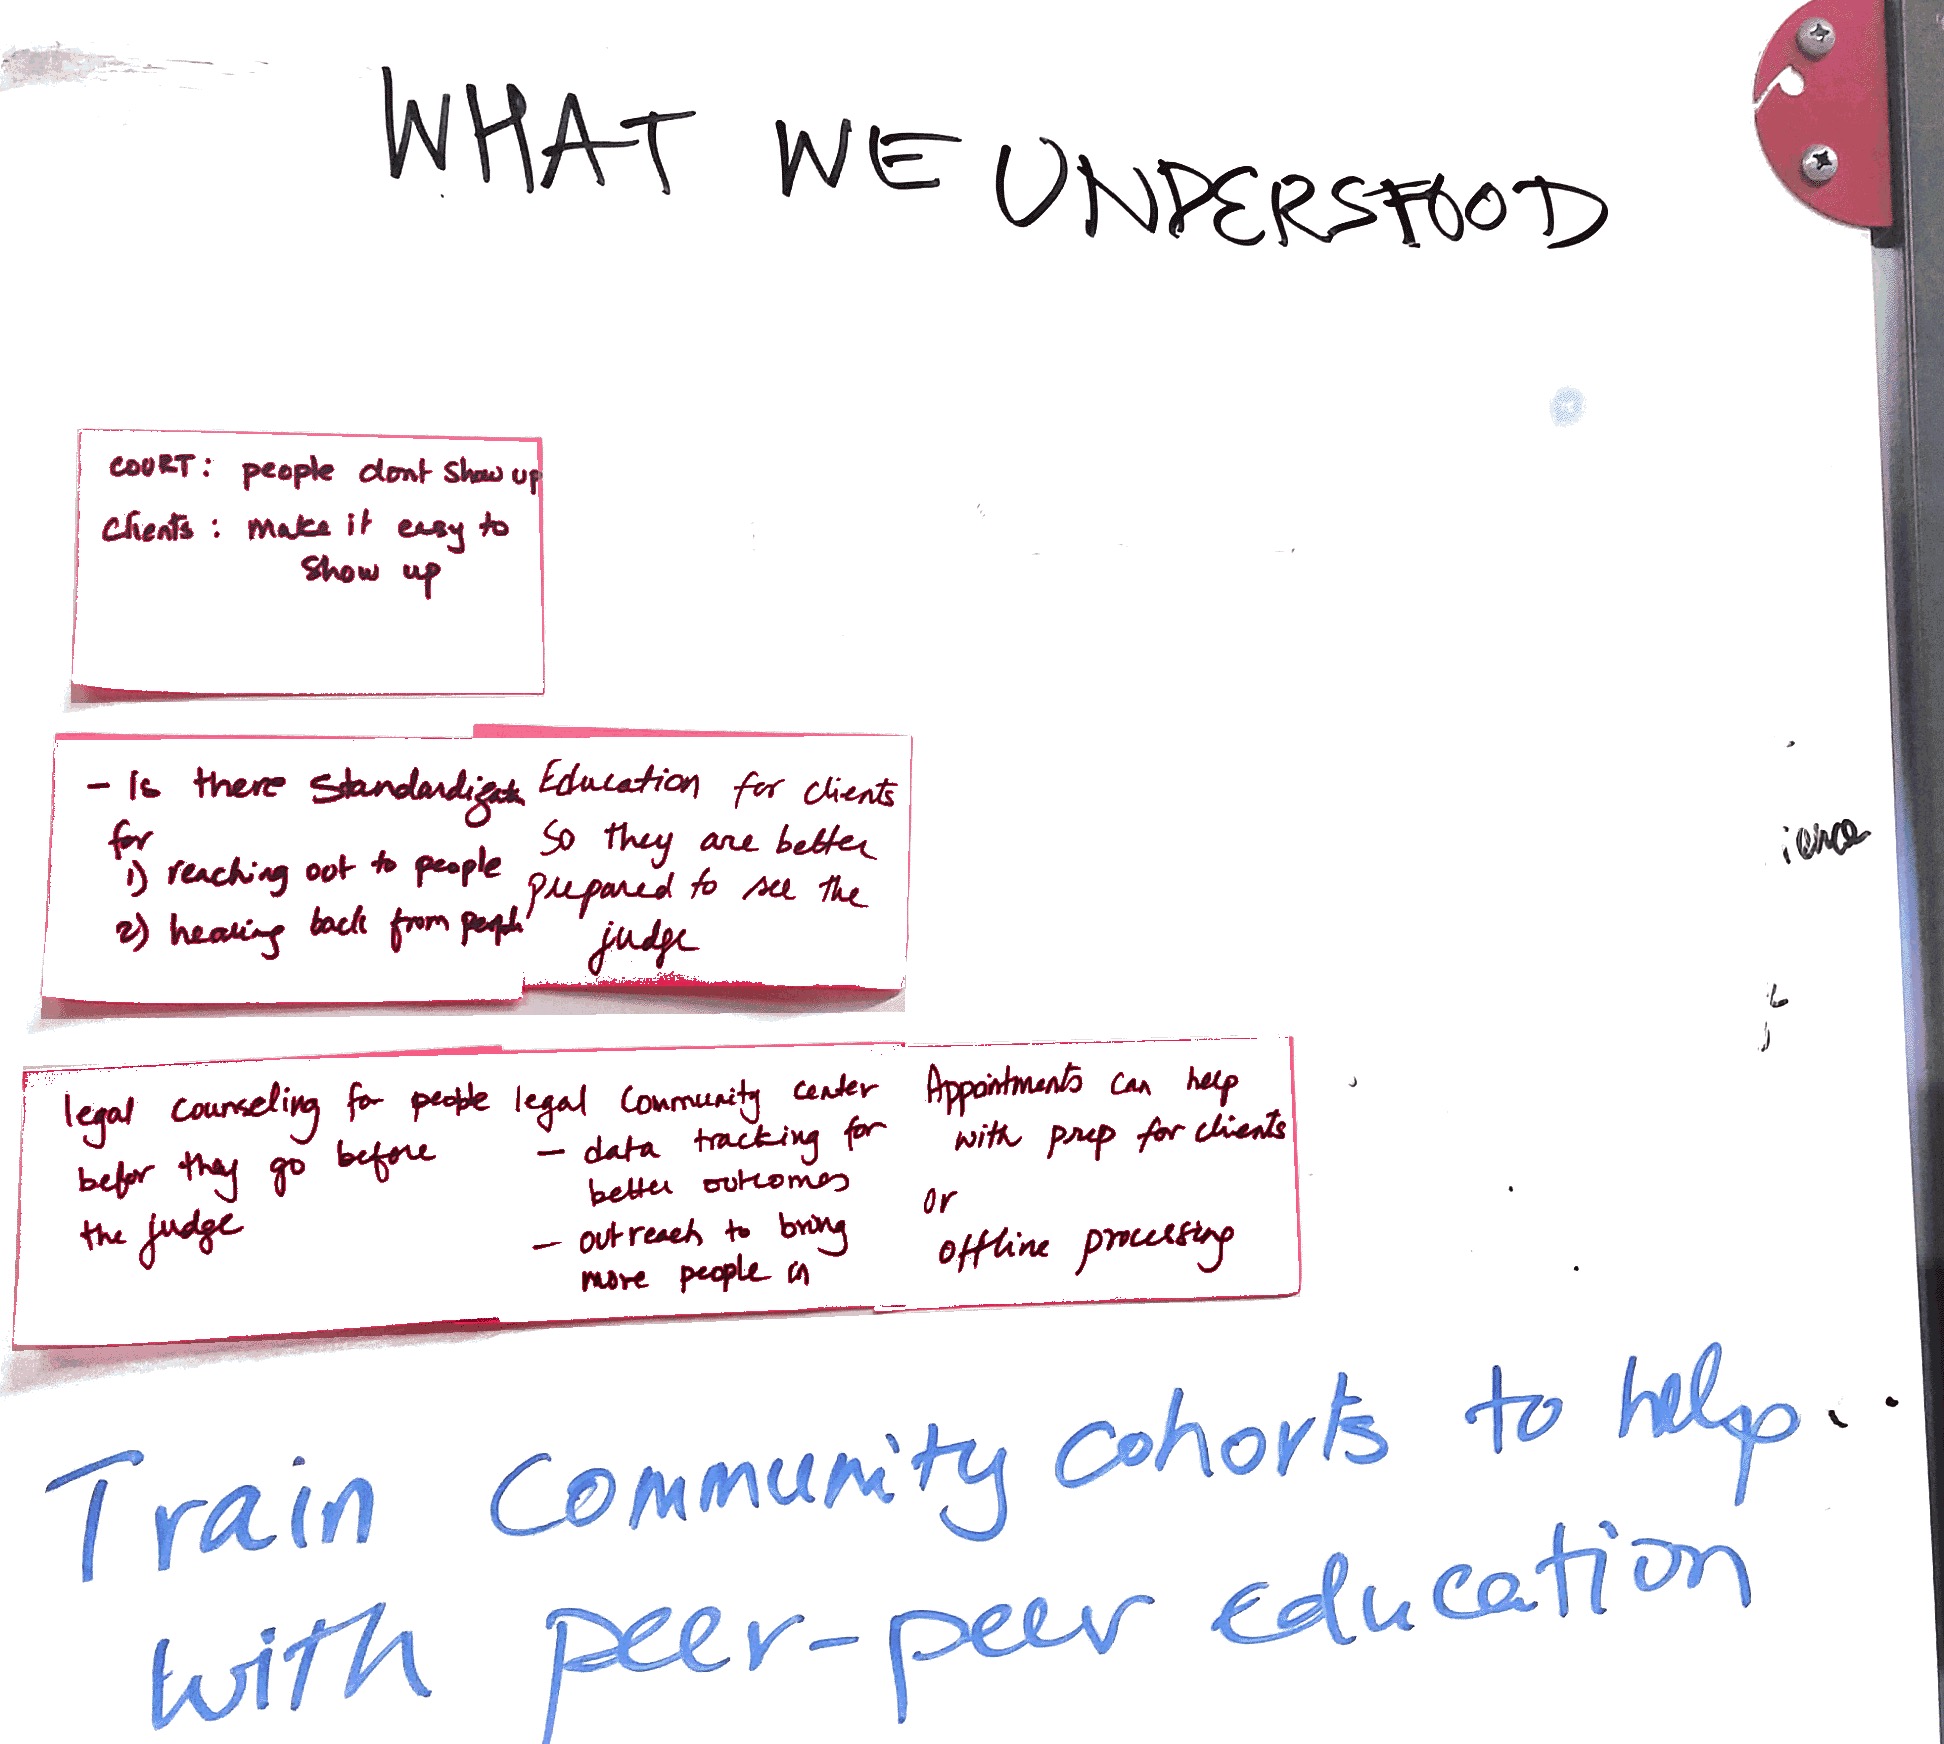 WHAT WE UNDERSTOOD
COURT: people dont show up
Clients: make it easy to
show up
- Is there Standardizatn
for
1) reaching out to people
2) hearing back from people
Education for clients
So they are better
prepared to see the
judge
legal counseling for people
befor they go before
the judge
legal Community center
- data tracking for
better outcomes
- outreach to bring
more people in
Appointments can help
with prep for clients
or
offline processing
Train Community cohorts to help..
with peer-peer education